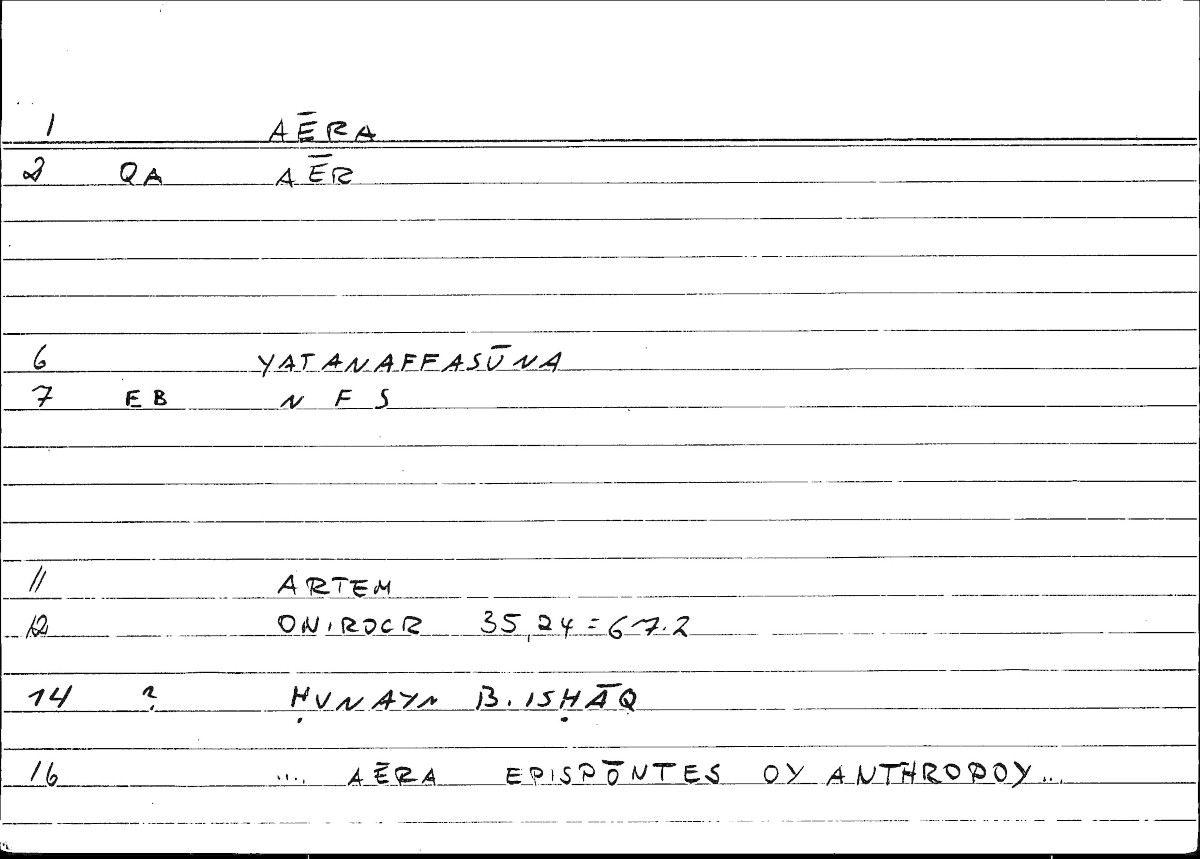 1 AĒRA
2 QA AĒR
6 YATANAFFASŪNA
7 EB N F S
11 ARTEM
12 ONIROCR 35,24 = 67.2
14 ? ḤUNAYN B. ISḤĀQ
16 .... AĒRA EPISPŌNTES OY ANTHROPOY ...